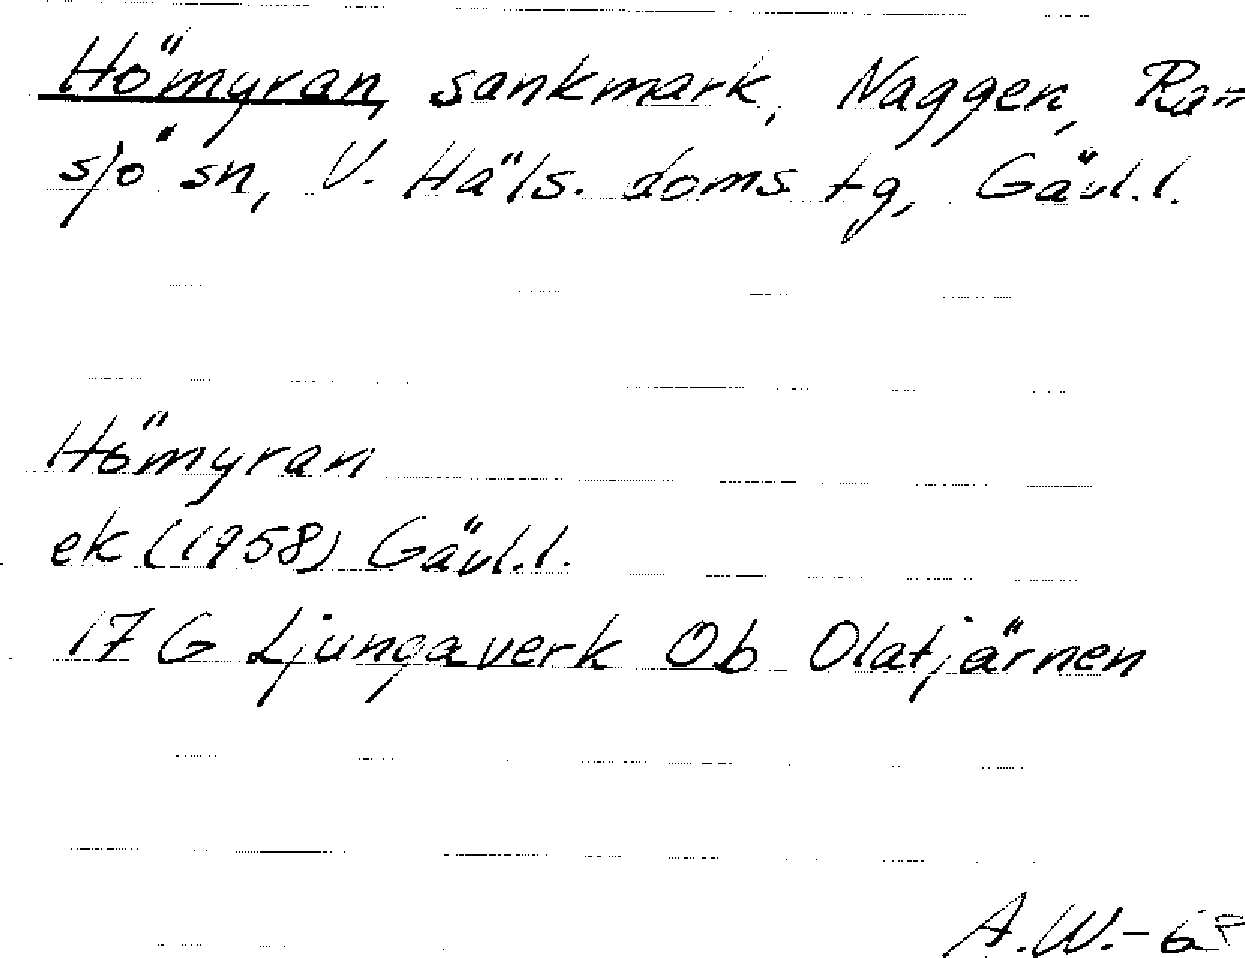 Hömyran, sankmark, Naggen, Ram-
sjö sn, V. Häls. doms tg, Gävl.l.
Hömyran
ek (1958) Gävl.l.
17 G Ljungaverk Ob Olatjärnen
A.W.-